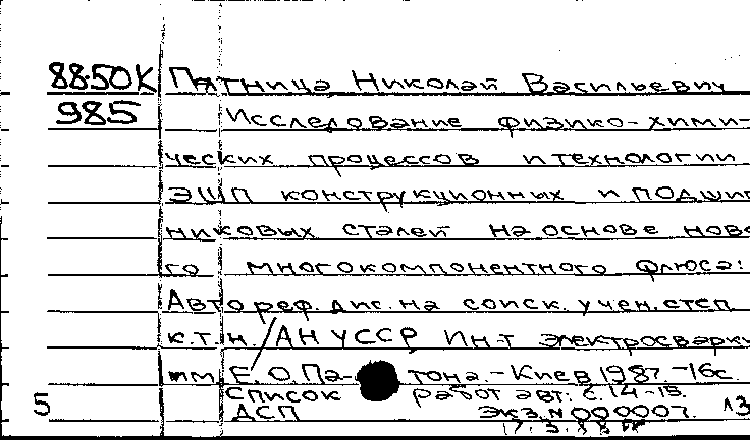 88-50К Пятница Николай Васильевич
985 Исследование физико-хими-
ческих процессов и технологии
ЭШП конструкционных и подшип
никовых сталей на основе ново
го многокомпонентного флюса:
Автореф. дис. на соиск. учен. степ
к.т.н. / АН УССР, Ин-т электросварки
им. Е. О. Патона. - Киев 1987. - 16с.
Список работ авт: с. 14-15.
5 ДСП Экз. N 000007. 13
17.3.88